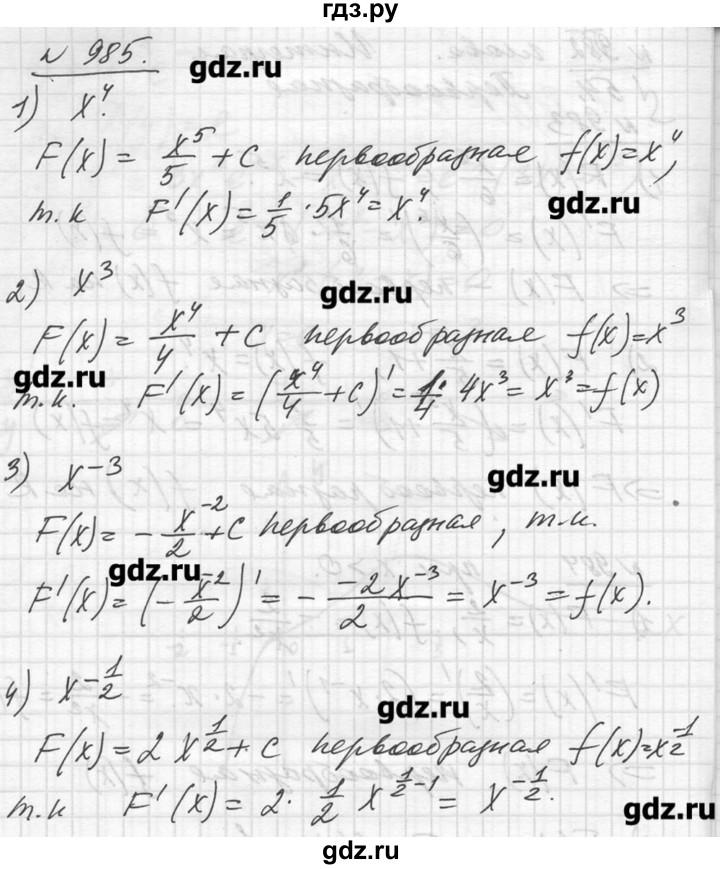 гдз.ру
№ 985.
gdz.ru
1) x⁴.
F(x) = x⁵/5 + C первообразная f(x)=x⁴,
т.к F'(x) = 1/5 · 5x⁴ = x⁴.
gdz.ru
2) x³
gdz.ru
F(x) = x⁴/4 + C первообразная f(x)=x³
gdz.ru
т.к. F'(x) = (x⁴/4 + C)' = 1/4 · 4x³ = x³ = f(x)
3) x⁻³
gdz.ru
F(x) = - x⁻²/2 + C первообразная, т.к.
gdz.ru
F'(x) = (- x⁻²/2)' = - -2x⁻³/2 = x⁻³ = f(x).
4) x^(-1/2)
gdz.ru
F(x) = 2 x^(1/2) + C первообразная f(x)=x^(-1/2)
т.к F'(x) = 2 · 1/2 x^(1/2-1) = x^(-1/2).
gdz.ru
gdz.ru